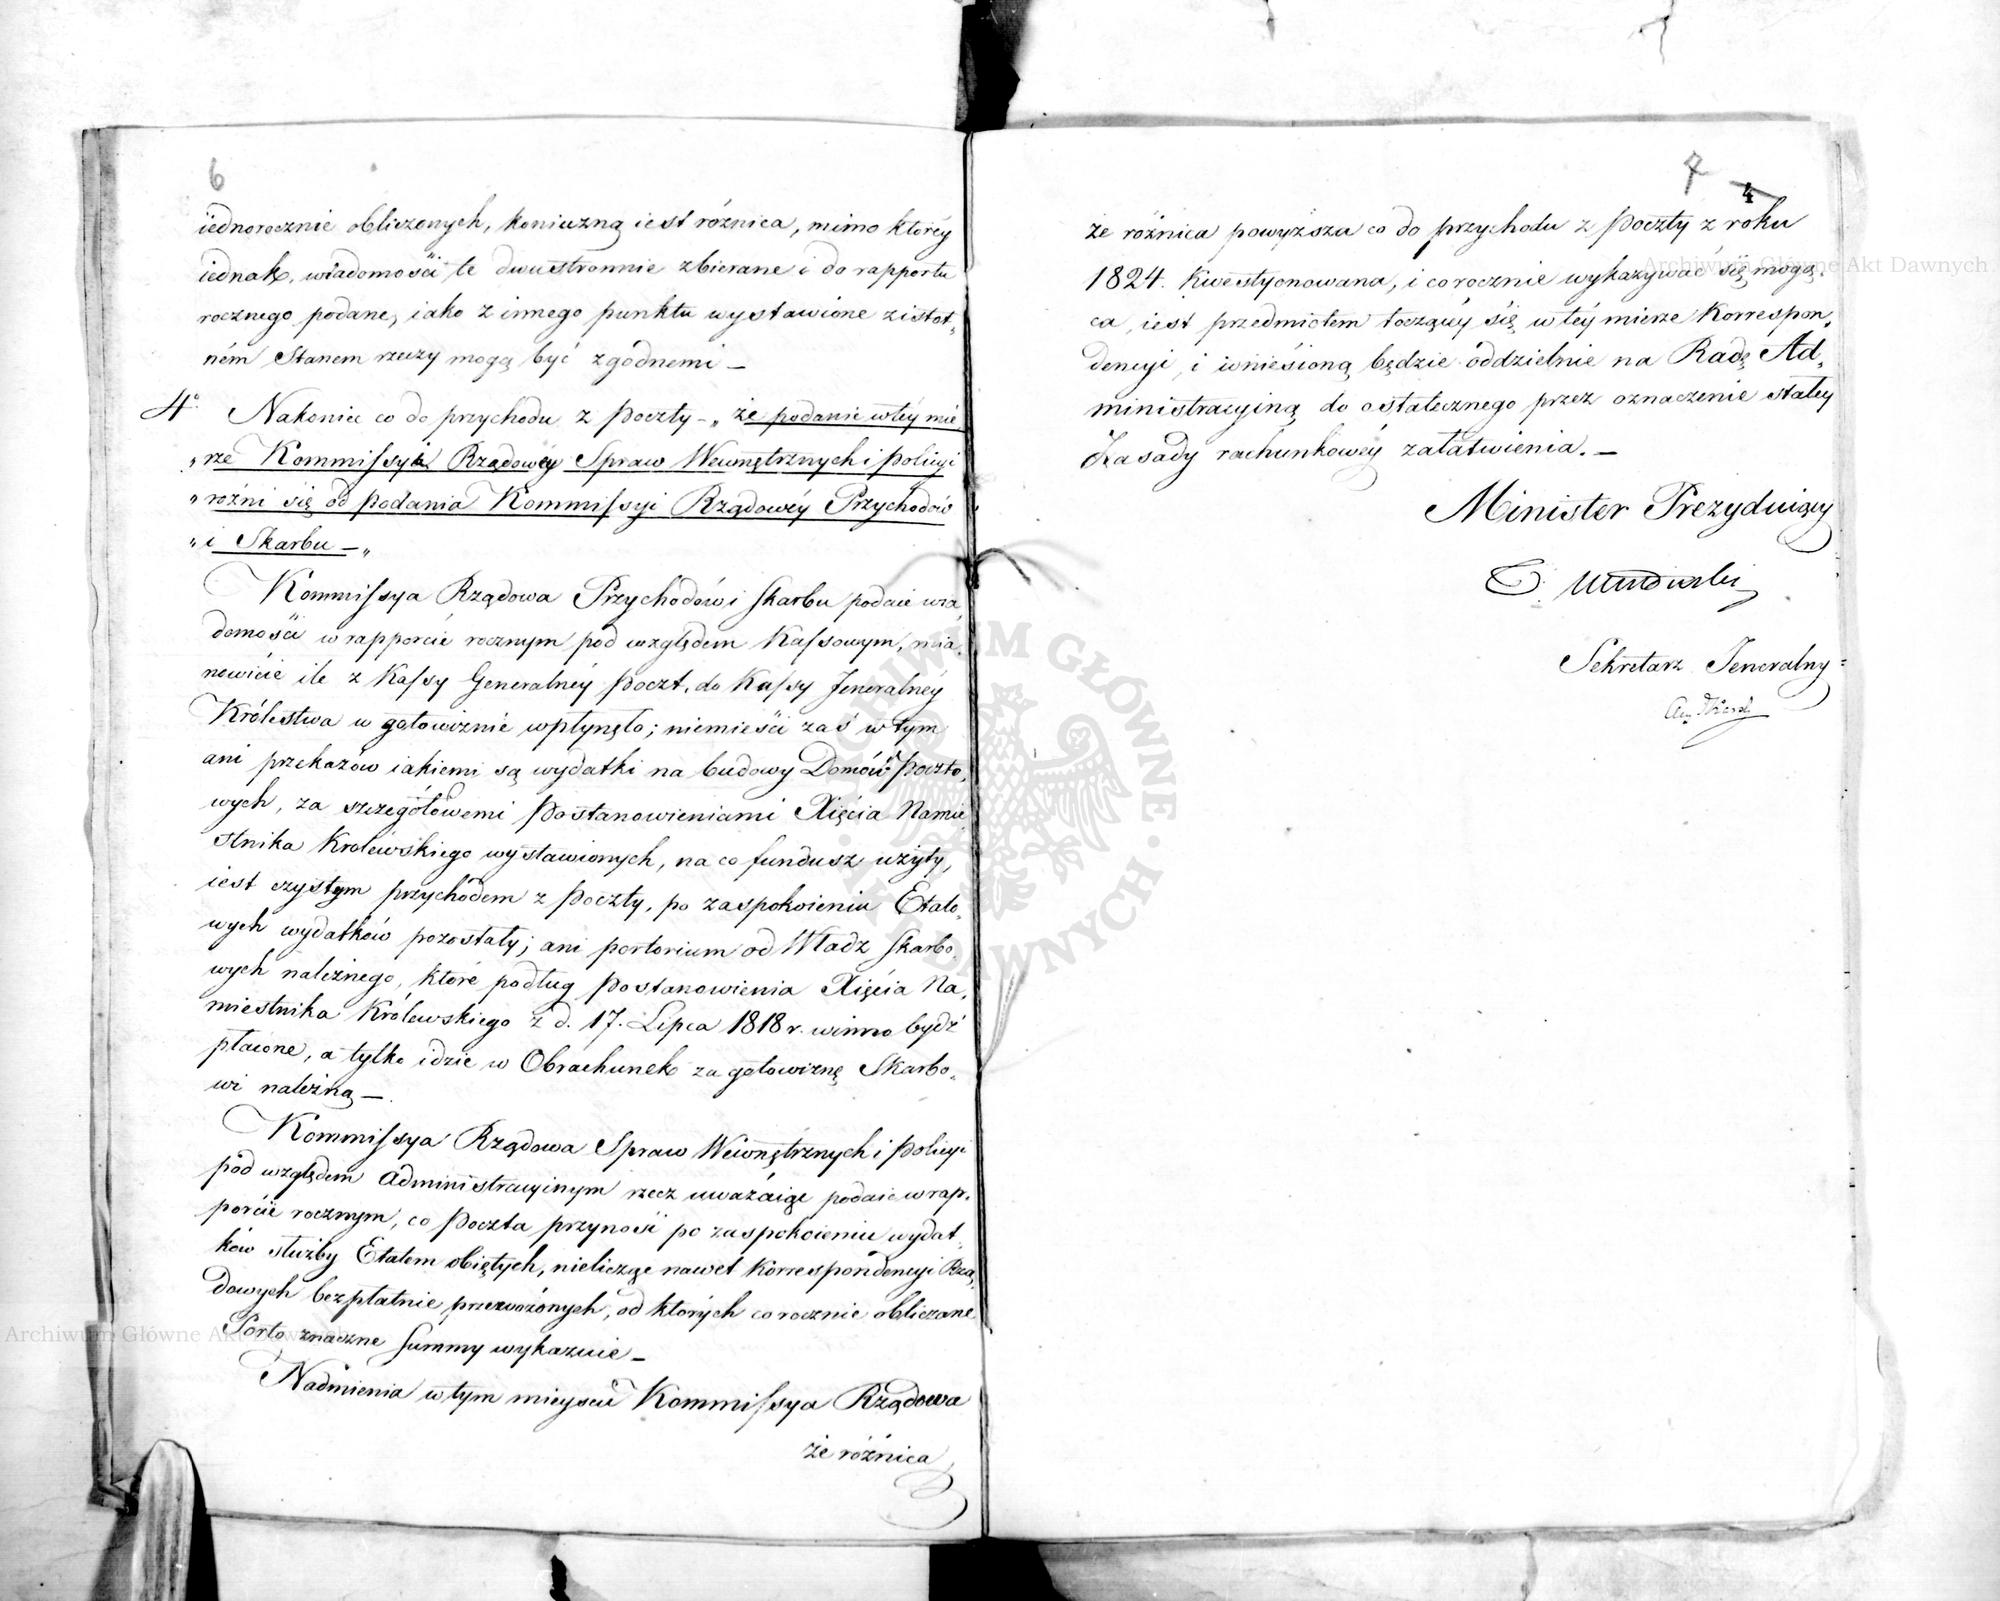 6
iednorocznie obliczonych, konieczną iest różnica, mimo któréy
iednak, wiadomości te dwustronnie zbierane i do rapportu
rocznego podane, iako z innego punktu wystawione z istot„
ném Stanem rzeczy mogą być zgodnemi —
4° Nakoniec co do przychodu z Poczty — „ że podanie w téy mie
„ rze Kommissyi Rządowéy Spraw Wewnętrznych i Policyi
„ rożni się od podania Kommissyi Rządowéy Przychodów
„ i Skarbu — „
Kommissya Rządowa Przychodów i Skarbu podaie wia
domości w rapporcie rocznym pod względem Kassowym, mia„
nowicie ile z Kassy Generalnéy Poczt, do Kassy Jeneralnéy
Królestwa w gotowiznie wpłynęło; niemieści zaś w tym
ani przekazów iakiemi są wydatki na budowy Domów Poczto„
wych, za szczegółowemi Postanowieniami Xięcia Namie
stnika Królewskiego wystawionych, na co fundusz użyty,
iest czystym przychodem z Poczty, po zaspokoieniu Etato„
wych wydatków pozostały; ani portorium od Władz Skarbo„
wych należnego, które podług Postanowienia Xięcia Na„
miestnika Królewskiego z d. 17. Lipca 1818 r. winno bydź
płacone, a tylko idzie w Obrachunek za gotowiznę Skarbo„
wi należną —
Kommissya Rządowa Spraw Wewnętrznych i Policyi
pod względem administracyinym rzecz uważaiąc podaie w rap„
porcie rocznym, co Poczta przynosi po zaspokoieniu wydat„
ków służby Etatem obiętych, nielicząc nawet Korrespondencyi Rzą„
dowych bezpłatnie przewożonych, od których corocznie obliczane
Porto znaczne Summy wykazuie —
Nadmienia w tym mieyscu Kommissya Rządowa
że różnica
7
4
że różnica powyższa co do przychodu z Poczty z roku
1824. kwestyonowana, i corocznie wykazywać się mogą„
ca, iest przedmiotem toczącéy się w téy mierze Korrespon„
dencyi, i wniesioną będzie oddzielnie na Radę Ad„
ministracyiną do ostatecznego przez oznaczenie stałey
Zasady rachunkowéy załatwienia. —
Minister Prezyduiący
Sekretarz Jeneralny
ARCHIWUM GŁÓWNE AKT DAWNYCH
Archiwum Główne Akt Dawnych
Archiwum Główne Akt Dawnych